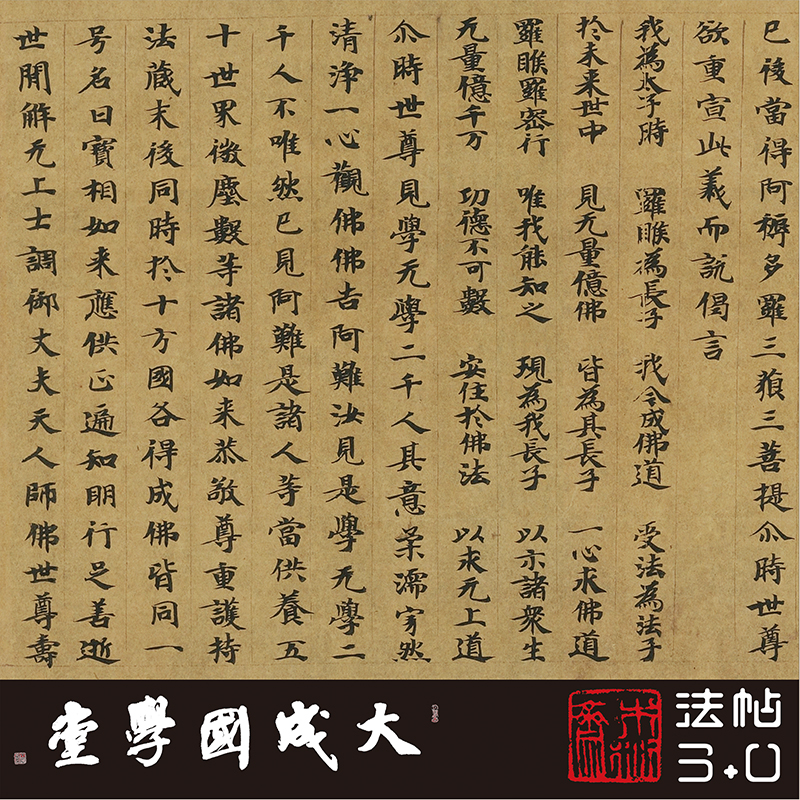 已後當得阿耨多羅三藐三菩提尒時世尊
欲重宣此義而說偈言
我為太子時 羅睺為長子 我今成佛道 受法為法子
於未來世中 見无量億佛 皆為其長子 一心求佛道
羅睺羅密行 唯我能知之 現為我長子 以示諸衆生
无量億千万 功德不可數 安住於佛法 以求无上道
尒時世尊見學无學二千人其意柔濡寂然
清淨一心觀佛佛告阿難汝見是學无學二
千人不唯然已見阿難是諸人等當供養五
十世界微塵數等諸佛如来恭敬尊重護持
法藏末後同時於十方國各得成佛皆同一
号名曰寶相如来應供正遍知明行足善逝
世間解无上士調御丈夫天人師佛世尊壽
大成國學堂
法帖
3.0